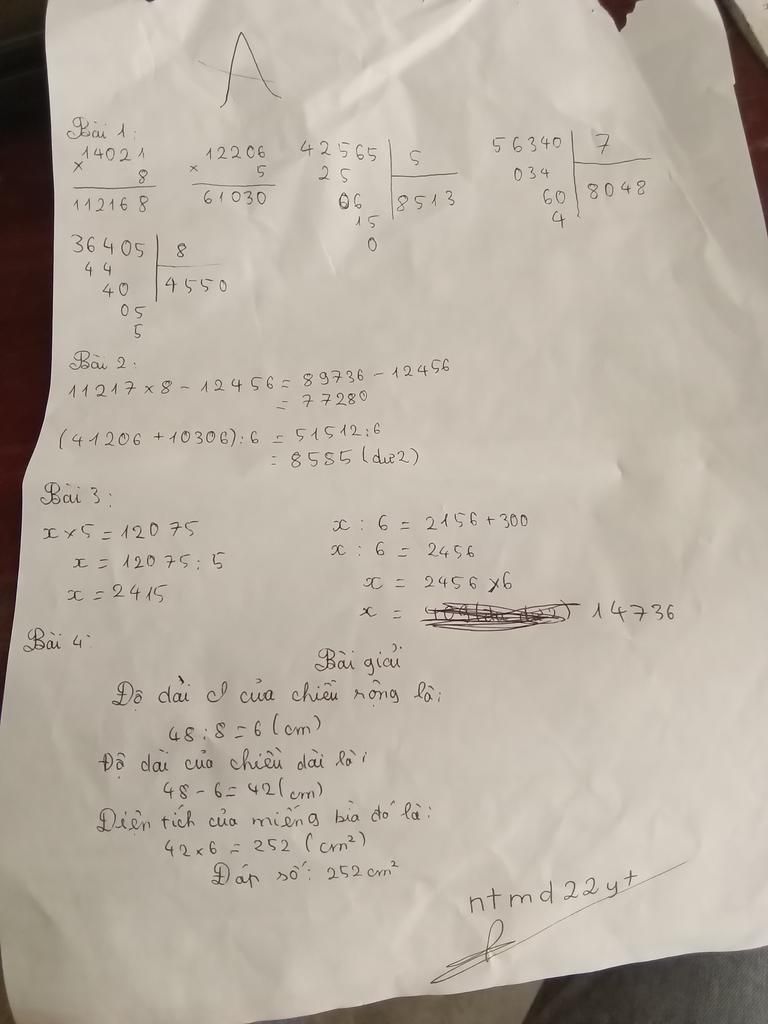 A
Bài 1:
14021
× 8
112168
12206
× 5
61030
42565 5
25 8513
06
15
0
56340 7
034 8048
60
4
36405 8
44 4550
40
05
5
Bài 2:
11217 × 8 - 12456 = 89736 - 12456
= 77280
(41206 + 10306) : 6 = 51512 : 6
= 8585 (dư 2)
Bài 3:
x × 5 = 12075
x = 12075 : 5
x = 2415
x : 6 = 2156 + 300
x : 6 = 2456
x = 2456 × 6
x = 14736
Bài 4:
Bài giải
Độ dài của chiều rộng là:
48 : 8 = 6 (cm)
Độ dài của chiều dài là:
48 - 6 = 42 (cm)
Diện tích của miếng bìa đó là:
42 × 6 = 252 (cm²)
Đáp số: 252 cm²
ntmd22yt